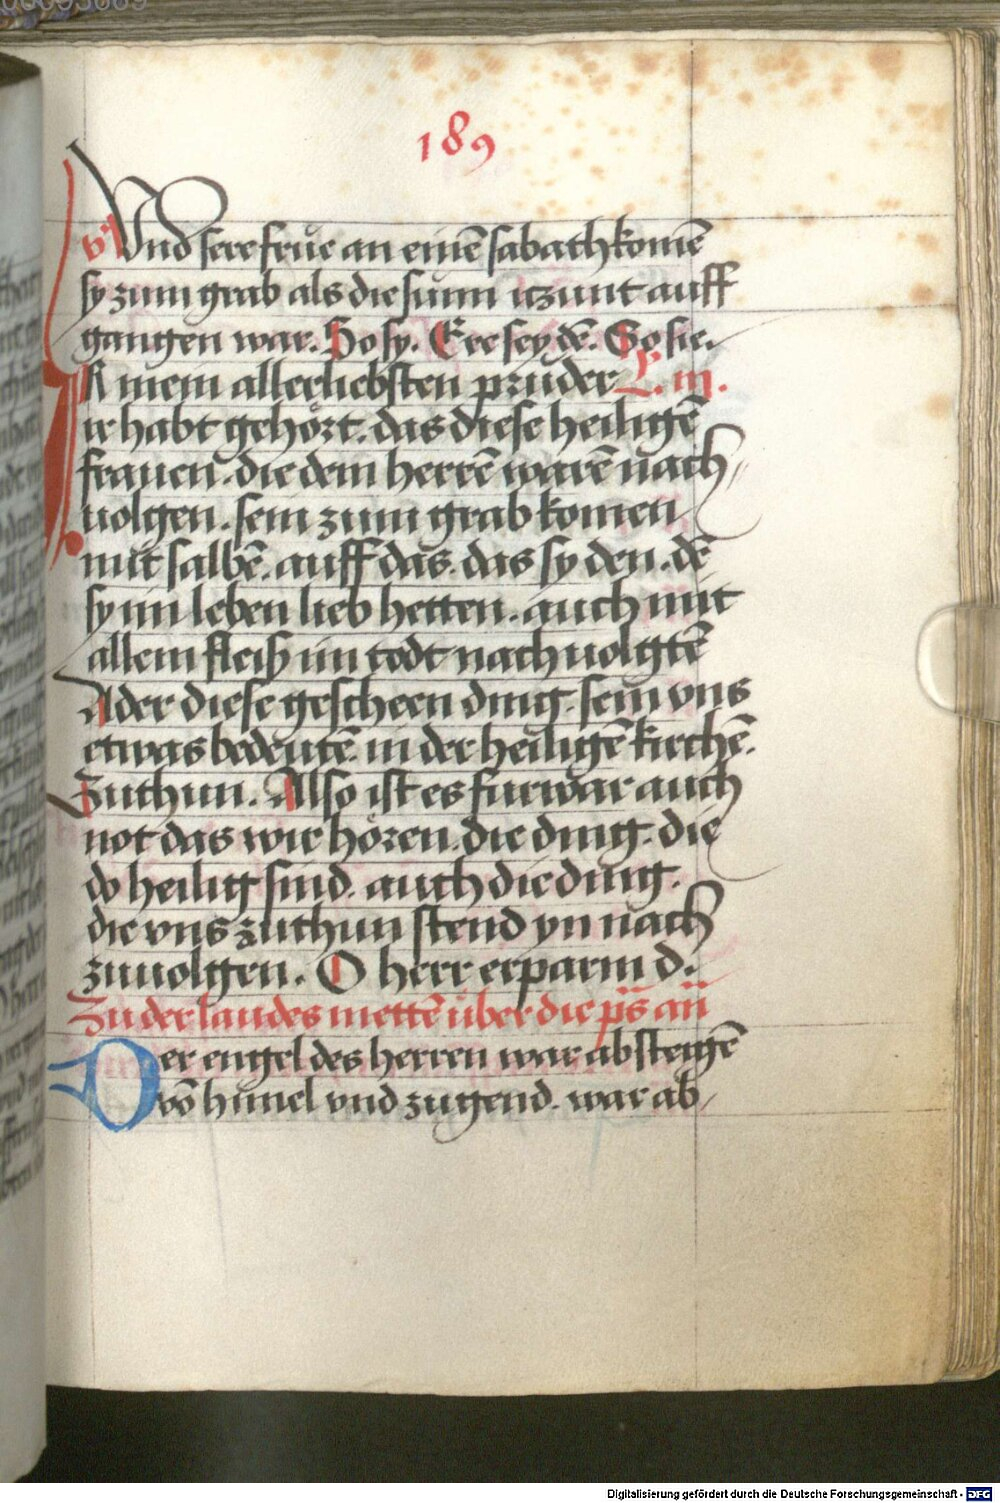 189
vͤ Und sere frue an einē sabath komē
sy zum grab als die sunn iczunt auff
gangen war. So sy. Ere sey dē. So sie.
IR mein allerliebsten pruder L. iij.
ir habt gehört. das diese heiligē
frauen. die dem herrē warē nach
uolgen. sein zum grab komen
mit salbē. auff das. das sy den. dē
sy im leben lieb hetten. auch mit
allem fleiß im todt nach uolgtē
Ader diese gescheen ding. sein vns
etwas bedeutē. in der heiligē kirchē.
Zuthun. Also ist es furwar auch
not das wir hören. die ding. die
do heilig sind. auch die ding.
die vns zuthun stend yn nach
zuuolgen. O herr erparm d.
Zu der laudes mettē über die ps̄ an̄
Der engel des herren war absteigē
vō himel vnd zugend. war ab
Digitalisierung gefördert durch die Deutsche Forschungsgemeinschaft - DFG